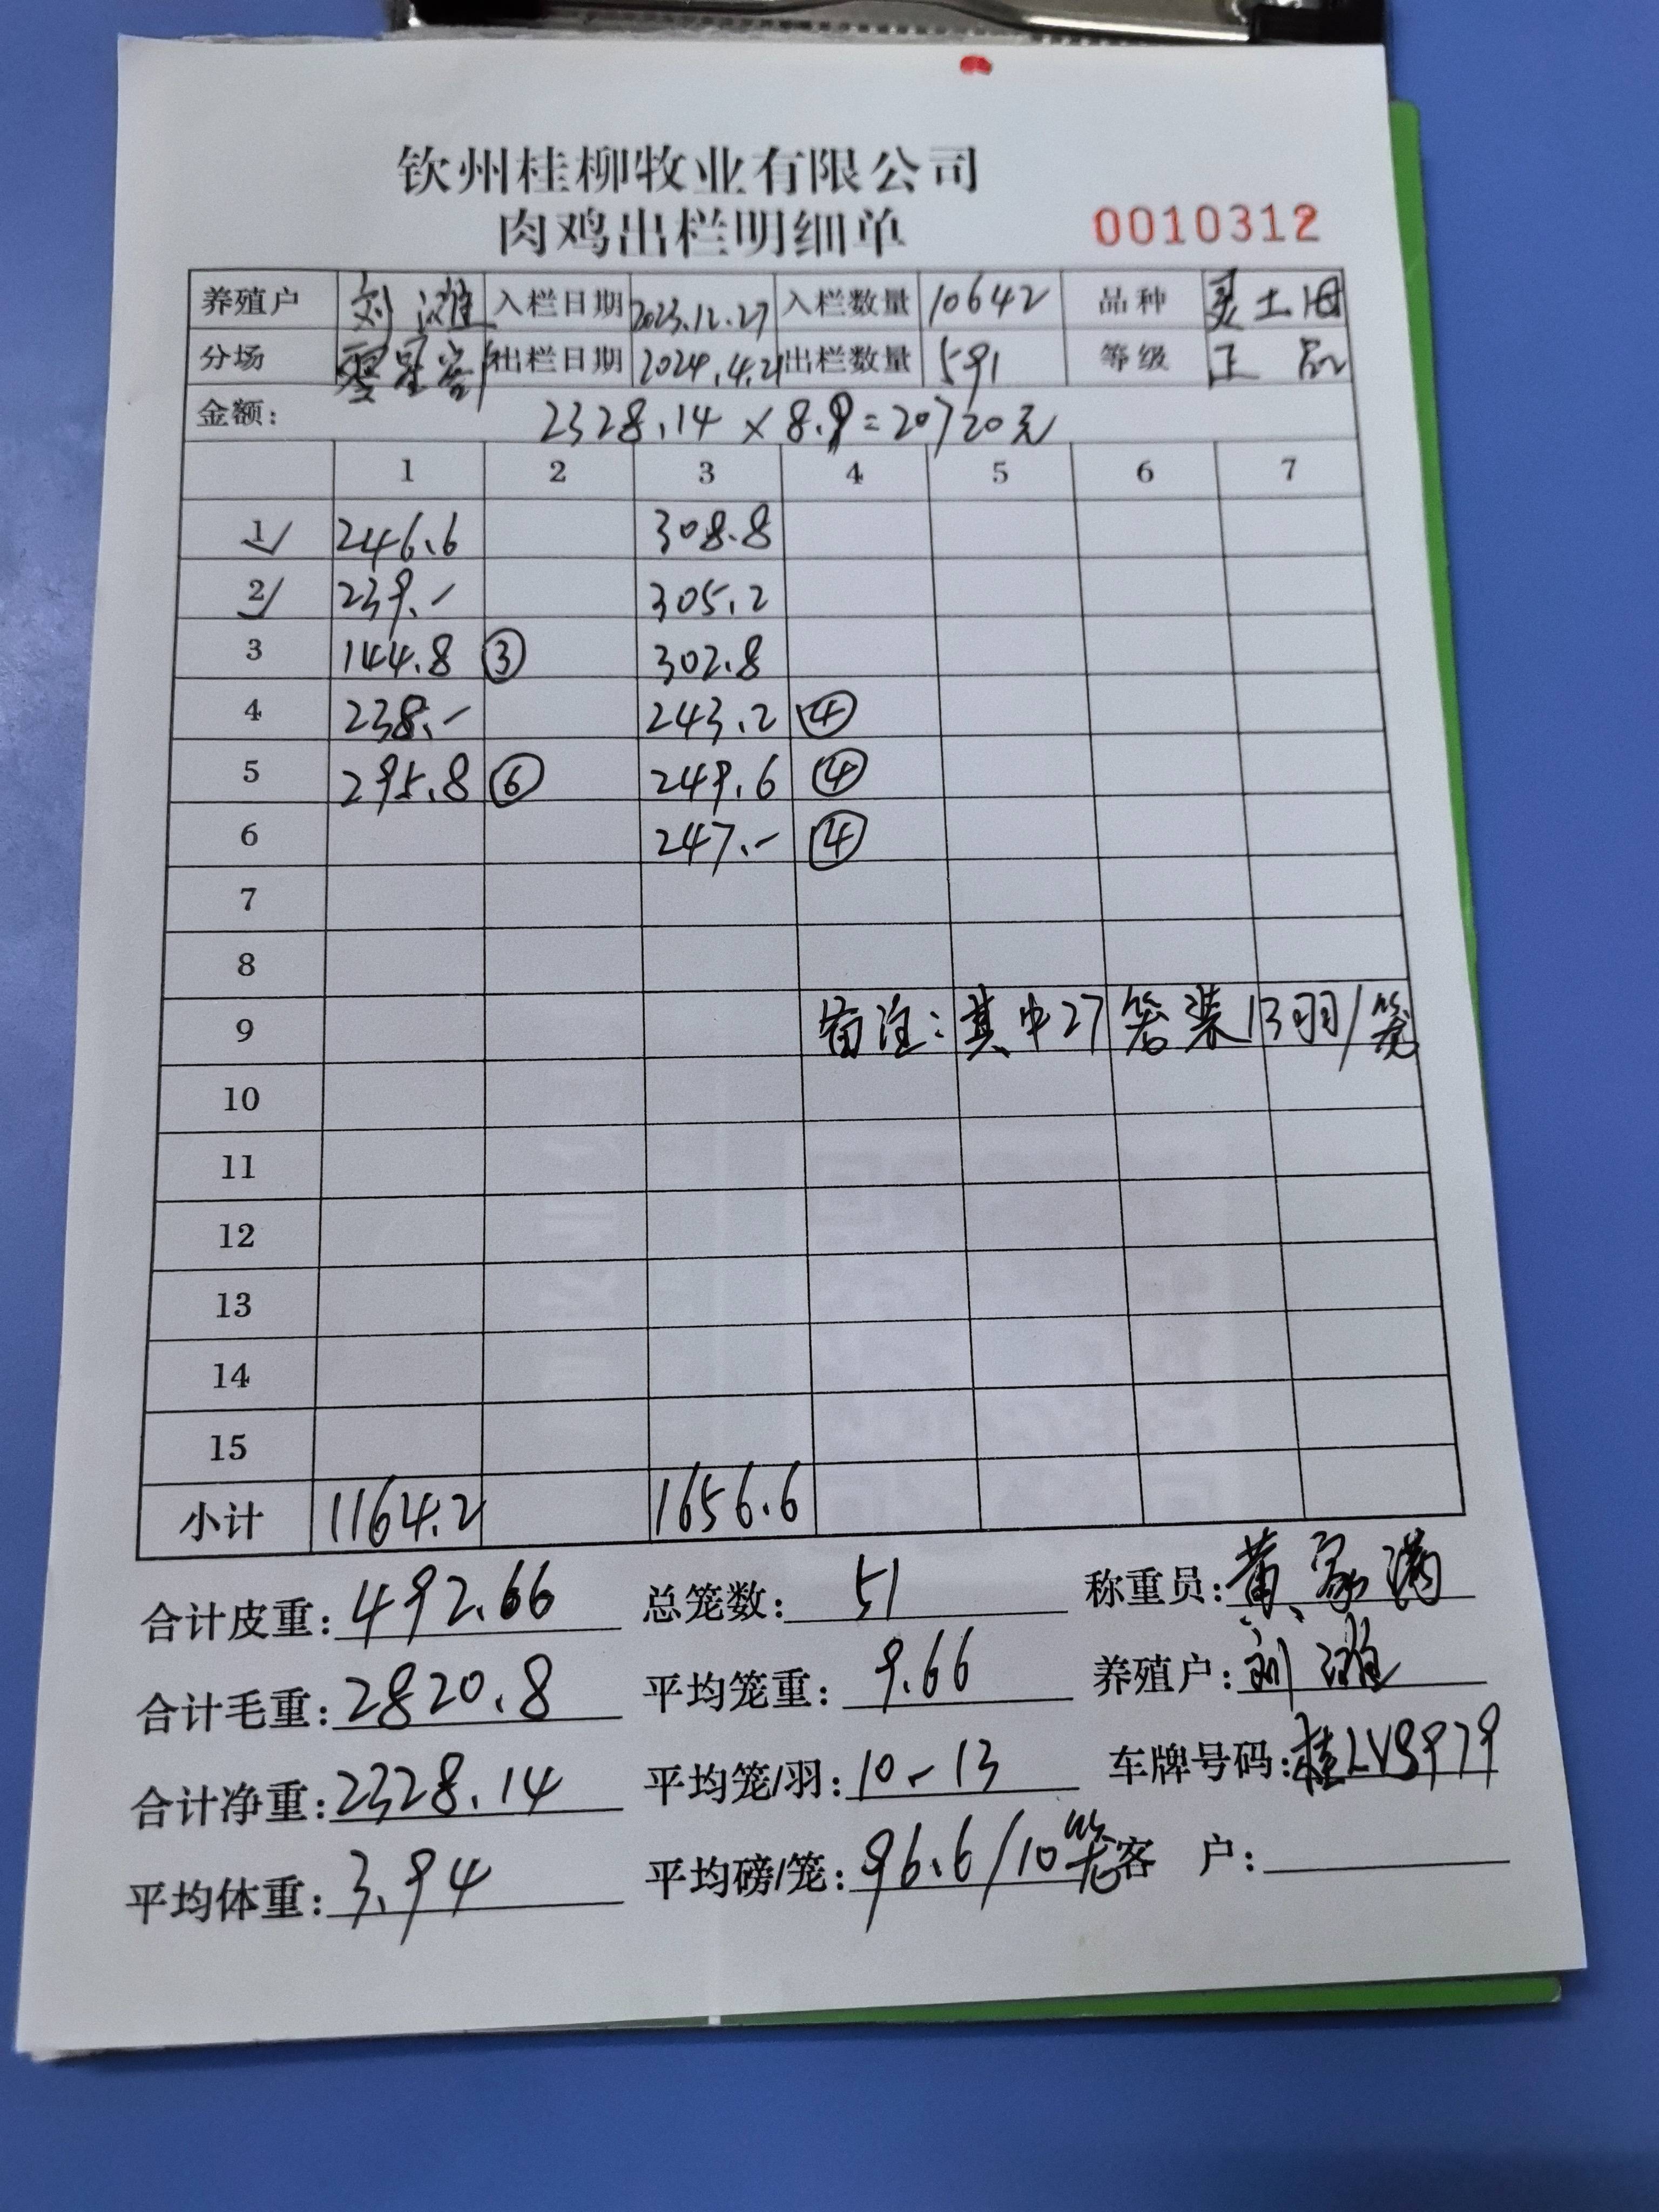 钦州桂柳牧业有限公司
肉鸡出栏明细单
0010312
养殖户 刘 入栏日期 2023.12.27 入栏数量 10642 品种 灵土
分场 出栏日期 2024.4.21 出栏数量 591 等级 正 品
金额: 2328.14 × 8.9=20720元
1 2 3 4 5 6 7
1 246.6 308.8
2 239.- 305.2
3 144.8 ③ 302.8
4 238.- 243.2 ④
5 295.8 ⑥ 249.6 ④
6 247.- ④
7
8
9 备注:其中27笼装13羽/笼
10
11
12
13
14
15
小计 1164.2 1656.6
合计皮重: 492.66 总笼数: 51 称重员: 黄家满
合计毛重: 2820.8 平均笼重: 9.66 养殖户: 刘
合计净重: 2328.14 平均笼/羽: 10-13 车牌号码: 桂LV9979
平均体重: 3.94 平均磅/笼: 96.6/10笼 客 户: